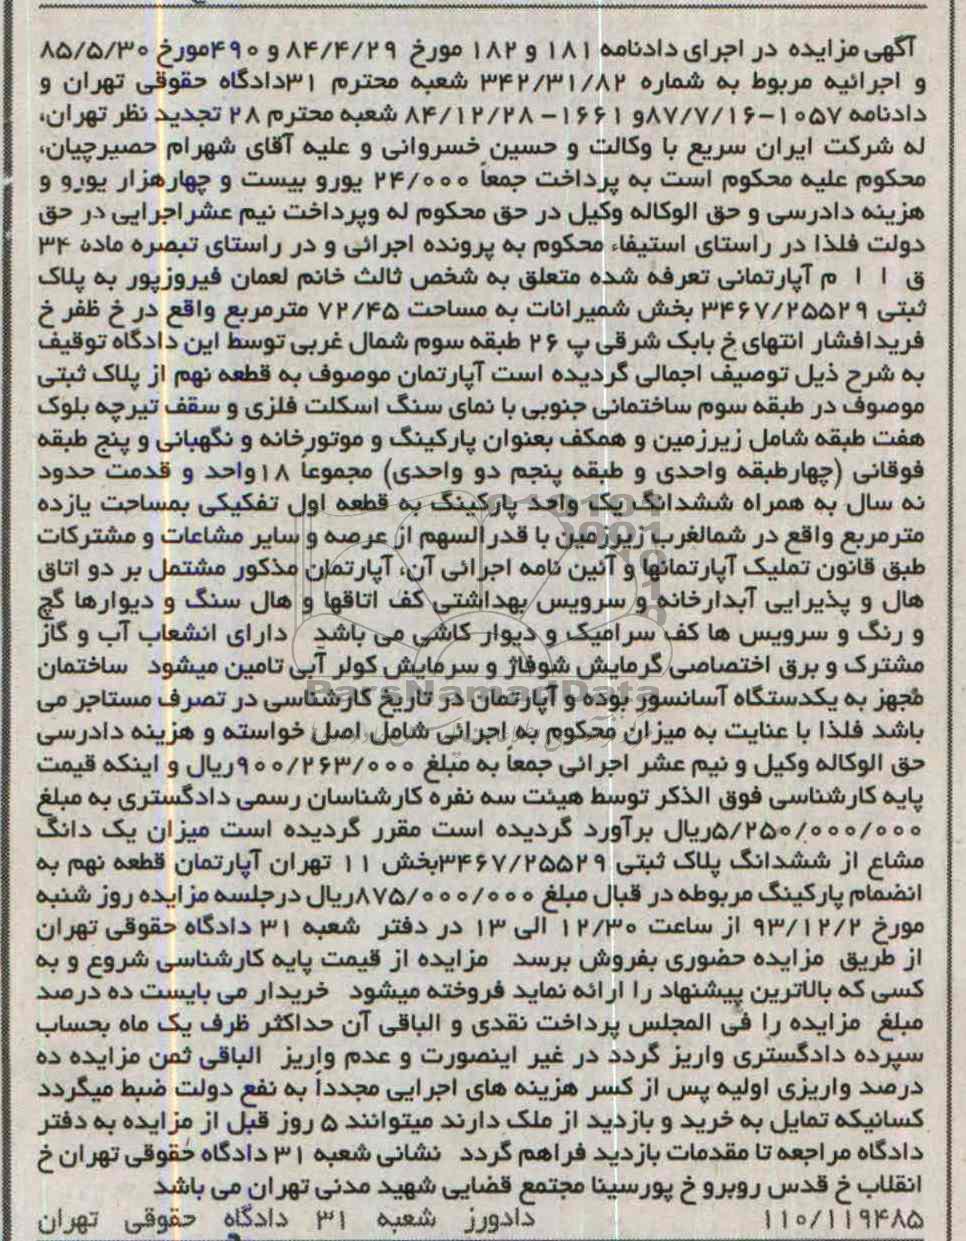 آگهی مزایده در اجرای دادنامه ۱۸۱ و ۱۸۲ مورخ ۸۴/۴/۲۹ و ۴۹۰مورخ ۸۵/۵/۳۰
و اجرائیه مربوط به شماره ۳۴۲/۳۱/۸۲ شعبه محترم ۳۱دادگاه حقوقی تهران و
دادنامه ۱۰۵۷-۸۷/۷/۱۶و ۱۶۶۱- ۸۴/۱۲/۲۸ شعبه محترم ۲۸ تجدید نظر تهران،
له شرکت ایران سریع با وکالت و حسین خسروانی و علیه آقای شهرام حصیرچیان،
محکوم علیه محکوم است به پرداخت جمعاً ۲۴/۰۰۰ یورو بیست و چهارهزار یورو و
هزینه دادرسی و حق الوکاله وکیل در حق محکوم له وپرداخت نیم عشراجرایی در حق
دولت فلذا در راستای استیفاء محکوم به پرونده اجرائی و در راستای تبصره ماده ۳۴
ق ا ا م آپارتمانی تعرفه شده متعلق به شخص ثالث خانم لعمان فیروزپور به پلاک
ثبتی ۳۴۶۷/۲۵۵۲۹ بخش شمیرانات به مساحت ۷۲/۴۵ مترمربع واقع در خ ظفر خ
فریدافشار انتهای خ بابک شرقی پ ۲۶ طبقه سوم شمال غربی توسط این دادگاه توقیف
به شرح ذیل توصیف اجمالی گردیده است آپارتمان موصوف به قطعه نهم از پلاک ثبتی
موصوف در طبقه سوم ساختمانی جنوبی با نمای سنگ اسکلت فلزی و سقف تیرچه بلوک
هفت طبقه شامل زیرزمین و همکف بعنوان پارکینگ و موتورخانه و نگهبانی و پنج طبقه
فوقانی (چهارطبقه واحدی و طبقه پنجم دو واحدی) مجموعاً ۱۸واحد و قدمت حدود
نه سال به همراه ششدانگ یک واحد پارکینگ به قطعه اول تفکیکی بمساحت یازده
مترمربع واقع در شمالغرب زیرزمین با قدرالسهم از عرصه و سایر مشاعات و مشترکات
طبق قانون تملیک آپارتمانها و آئین نامه اجرائی آن، آپارتمان مذکور مشتمل بر دو اتاق
هال و پذیرایی آبدارخانه و سرویس بهداشتی کف اتاقها و هال سنگ و دیوارها گچ
و رنگ و سرویس ها کف سرامیک و دیوار کاشی می باشد دارای انشعاب آب و گاز
مشترک و برق اختصاصی گرمایش شوفاژ و سرمایش کولر آبی تامین میشود ساختمان
مجهز به یکدستگاه آسانسور بوده و آپارتمان در تاریخ کارشناسی در تصرف مستاجر می
باشد فلذا با عنایت به میزان محکوم به اجرائی شامل اصل خواسته و هزینه دادرسی
حق الوکاله وکیل و نیم عشر اجرائی جمعاً به مبلغ ۹۰۰/۲۶۳/۰۰۰ریال و اینکه قیمت
پایه کارشناسی فوق الذکر توسط هیئت سه نفره کارشناسان رسمی دادگستری به مبلغ
۵/۲۵۰/۰۰۰/۰۰۰ریال برآورد گردیده است مقرر گردیده است میزان یک دانگ
مشاع از ششدانگ پلاک ثبتی ۳۴۶۷/۲۵۵۲۹بخش ۱۱ تهران آپارتمان قطعه نهم به
انضمام پارکینگ مربوطه در قبال مبلغ ۸۷۵/۰۰۰/۰۰۰ریال درجلسه مزایده روز شنبه
مورخ ۹۳/۱۲/۲ از ساعت ۱۲/۳۰ الی ۱۳ در دفتر شعبه ۳۱ دادگاه حقوقی تهران
از طریق مزایده حضوری بفروش برسد مزایده از قیمت پایه کارشناسی شروع و به
کسی که بالاترین پیشنهاد را ارائه نماید فروخته میشود خریدار می بایست ده درصد
مبلغ مزایده را فی المجلس پرداخت نقدی و الباقی آن حداکثر ظرف یک ماه بحساب
سپرده دادگستری واریز گردد در غیر اینصورت و عدم واریز الباقی ثمن مزایده ده
درصد واریزی اولیه پس از کسر هزینه های اجرایی مجدداً به نفع دولت ضبط میگردد
کسانیکه تمایل به خرید و بازدید از ملک دارند میتوانند ۵ روز قبل از مزایده به دفتر
دادگاه مراجعه تا مقدمات بازدید فراهم گردد نشانی شعبه ۳۱ دادگاه حقوقی تهران خ
انقلاب خ قدس روبرو خ پورسینا مجتمع قضایی شهید مدنی تهران می باشد
۱۱۰/۱۱۹۴۸۵ دادورز شعبه ۳۱ دادگاه حقوقی تهران
ParsNamadData